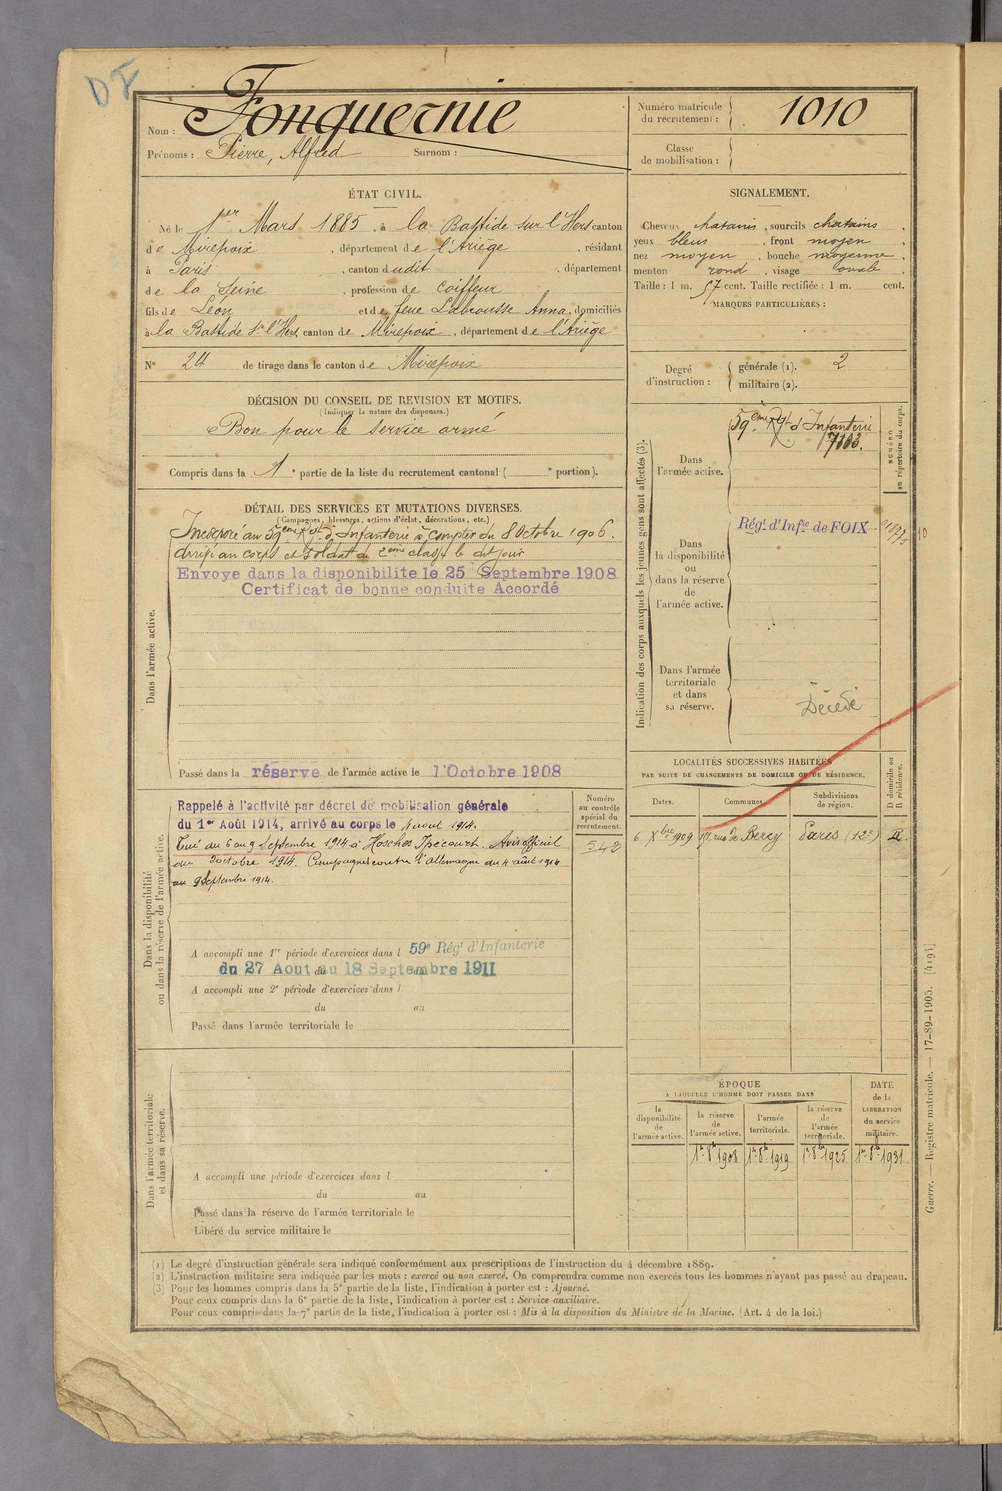 DF
Nom : Fonquernie
Prénoms : Pierre, Alfred Surnom :
Numéro matricule du recrutement : 1010
Classe de mobilisation :
ÉTAT CIVIL.
Né le 1er Mars 1885, à la Bastide sur l'Hers canton
de Mirepoix, département de l'Ariège, résidant
à Paris, canton dudit, département
de la Seine, profession de coiffeur
fils de Léon et de feue Labrousse Anna, domiciliés
à la Bastide s/r l'Hers, canton de Mirepoix, département de l'Ariège
N° 24 de tirage dans le canton de Mirepoix
SIGNALEMENT.
Cheveux chatains, sourcils chatains,
yeux bleus, front moyen,
nez moyen, bouche moyenne,
menton rond, visage ovale,
Taille : 1 m. 57 cent. Taille rectifiée : 1 m. cent.
MARQUES PARTICULIÈRES :
Degré d'instruction : générale (1). 2
militaire (2).
DÉCISION DU CONSEIL DE REVISION ET MOTIFS.
(Indiquer la nature des dispenses.)
Bon pour le service armé
Compris dans la 1e partie de la liste du recrutement cantonal ( e portion).
DÉTAIL DES SERVICES ET MUTATIONS DIVERSES.
(Campagnes, blessures, actions d'éclat, décorations, etc.)
Dans l'armée active.
Incorporé au 59ème Rgt d'Infanterie à compter du 8 Octobre 1906.
arrivé au corps et soldat de 2ème classe le dit jour
Envoye dans la disponibilite le 25 Septembre 1908
Certificat de bonne conduite Accordé
Passé dans la réserve de l'armée active le 1 Octobre 1908
Indication des corps auxquels les jeunes gens sont affectés (3).
NUMÉRO au répertoire du corps.
Dans l'armée active.
59ème Rgt d'Infanterie
7103.
Dans la disponibilité ou dans la réserve de l'armée active.
Régt d'Infie de FOIX
Dans l'armée territoriale et dans sa réserve.
Décédé
Dans la disponibilité ou dans la réserve de l'armée active.
Rappelé à l'activité par décret de mobilisation générale
du 1er Août 1914, arrivé au corps le 4 aout 1914.
Tué du 6 au 9 Septembre 1914 à Avis officiel
du octobre 1914. Campagne contre l'Allemagne du 4 août 1914
au 9 Septembre 1914.
Numéro au contrôle spécial du recrutement.
542
A accompli une 1re période d'exercices dans l 59e Régt d'Infanterie
du 27 Aout au 18 Septembre 1911
A accompli une 2e période d'exercices dans l
du au
Passé dans l'armée territoriale le
LOCALITÉS SUCCESSIVES HABITÉES
PAR SUITE DE CHANGEMENTS DE DOMICILE OU DE RÉSIDENCE.
Dates. Communes. Subdivisions de région. D domicile ou R résidence.
6 Xbre 1909 17, rue de Bercy Paris (12e) R
Dans l'armée territoriale et dans sa réserve.
A accompli une période d'exercices dans l
du au
Passé dans la réserve de l'armée territoriale le
Libéré du service militaire le
ÉPOQUE
À LAQUELLE L'HOMME DOIT PASSER DANS
la disponibilité de l'armée active.
la réserve de l'armée active.
l'armée territoriale.
la réserve de l'armée territoriale.
DATE de la LIBÉRATION du service militaire.
1er 8bre 1908 1er 8bre 1919 1er 8bre 1925 1er 8bre 1931
Guerre. — Registre matricule. — 17-89-1905. [4194]
(1) Le degré d'instruction générale sera indiqué conformément aux prescriptions de l'instruction du 4 décembre 1889.
(2) L'instruction militaire sera indiquée par les mots : exercé ou non exercé. On comprendra comme non exercés tous les hommes n'ayant pas passé au drapeau.
(3) Pour les hommes compris dans la 5e partie de la liste, l'indication à porter est : Ajourné.
Pour ceux compris dans la 6e partie de la liste, l'indication à porter est : Service auxiliaire.
Pour ceux compris dans la 7e partie de la liste, l'indication à porter est : Mis à la disposition du Ministre de la Marine. (Art. 4 de la loi.)